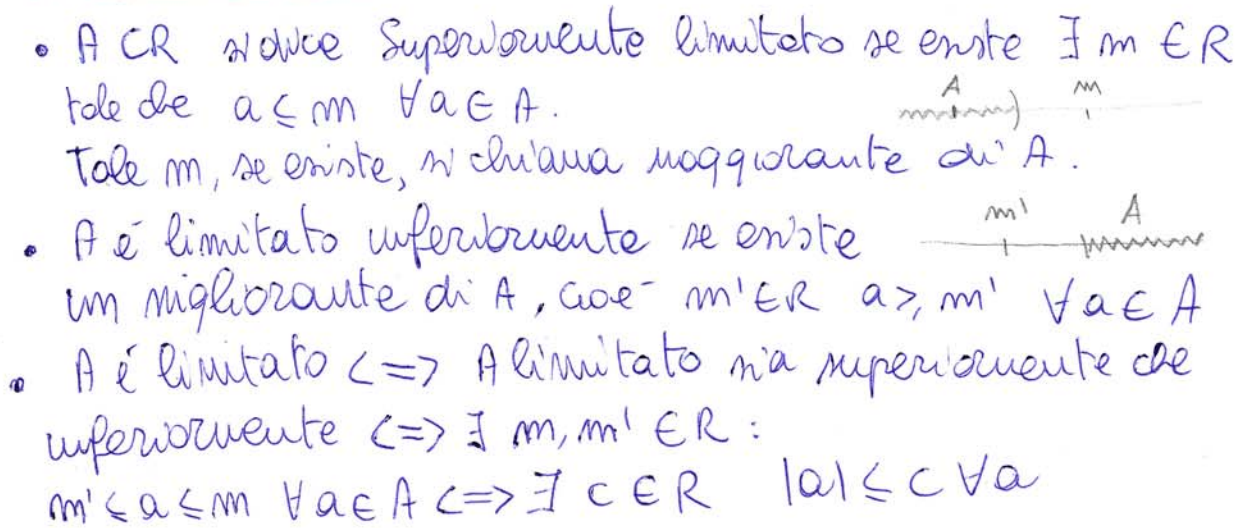 • A ⊂ R si dice Superiormente limitato se esiste ∃ m ∈ R
tale che a ≤ m ∀ a ∈ A.
A m
Tale m, se esiste, si chiama maggiorante di A.
• A é limitato inferiormente se esiste
m' A
un migliorante di A, cioè m' ∈ R a ≥ m' ∀ a ∈ A
• A é limitato <=> A limitato sia superiormente che
inferiormente <=> ∃ m, m' ∈ R :
m' ≤ a ≤ m ∀ a ∈ A <=> ∃ c ∈ R |a| ≤ c ∀ a